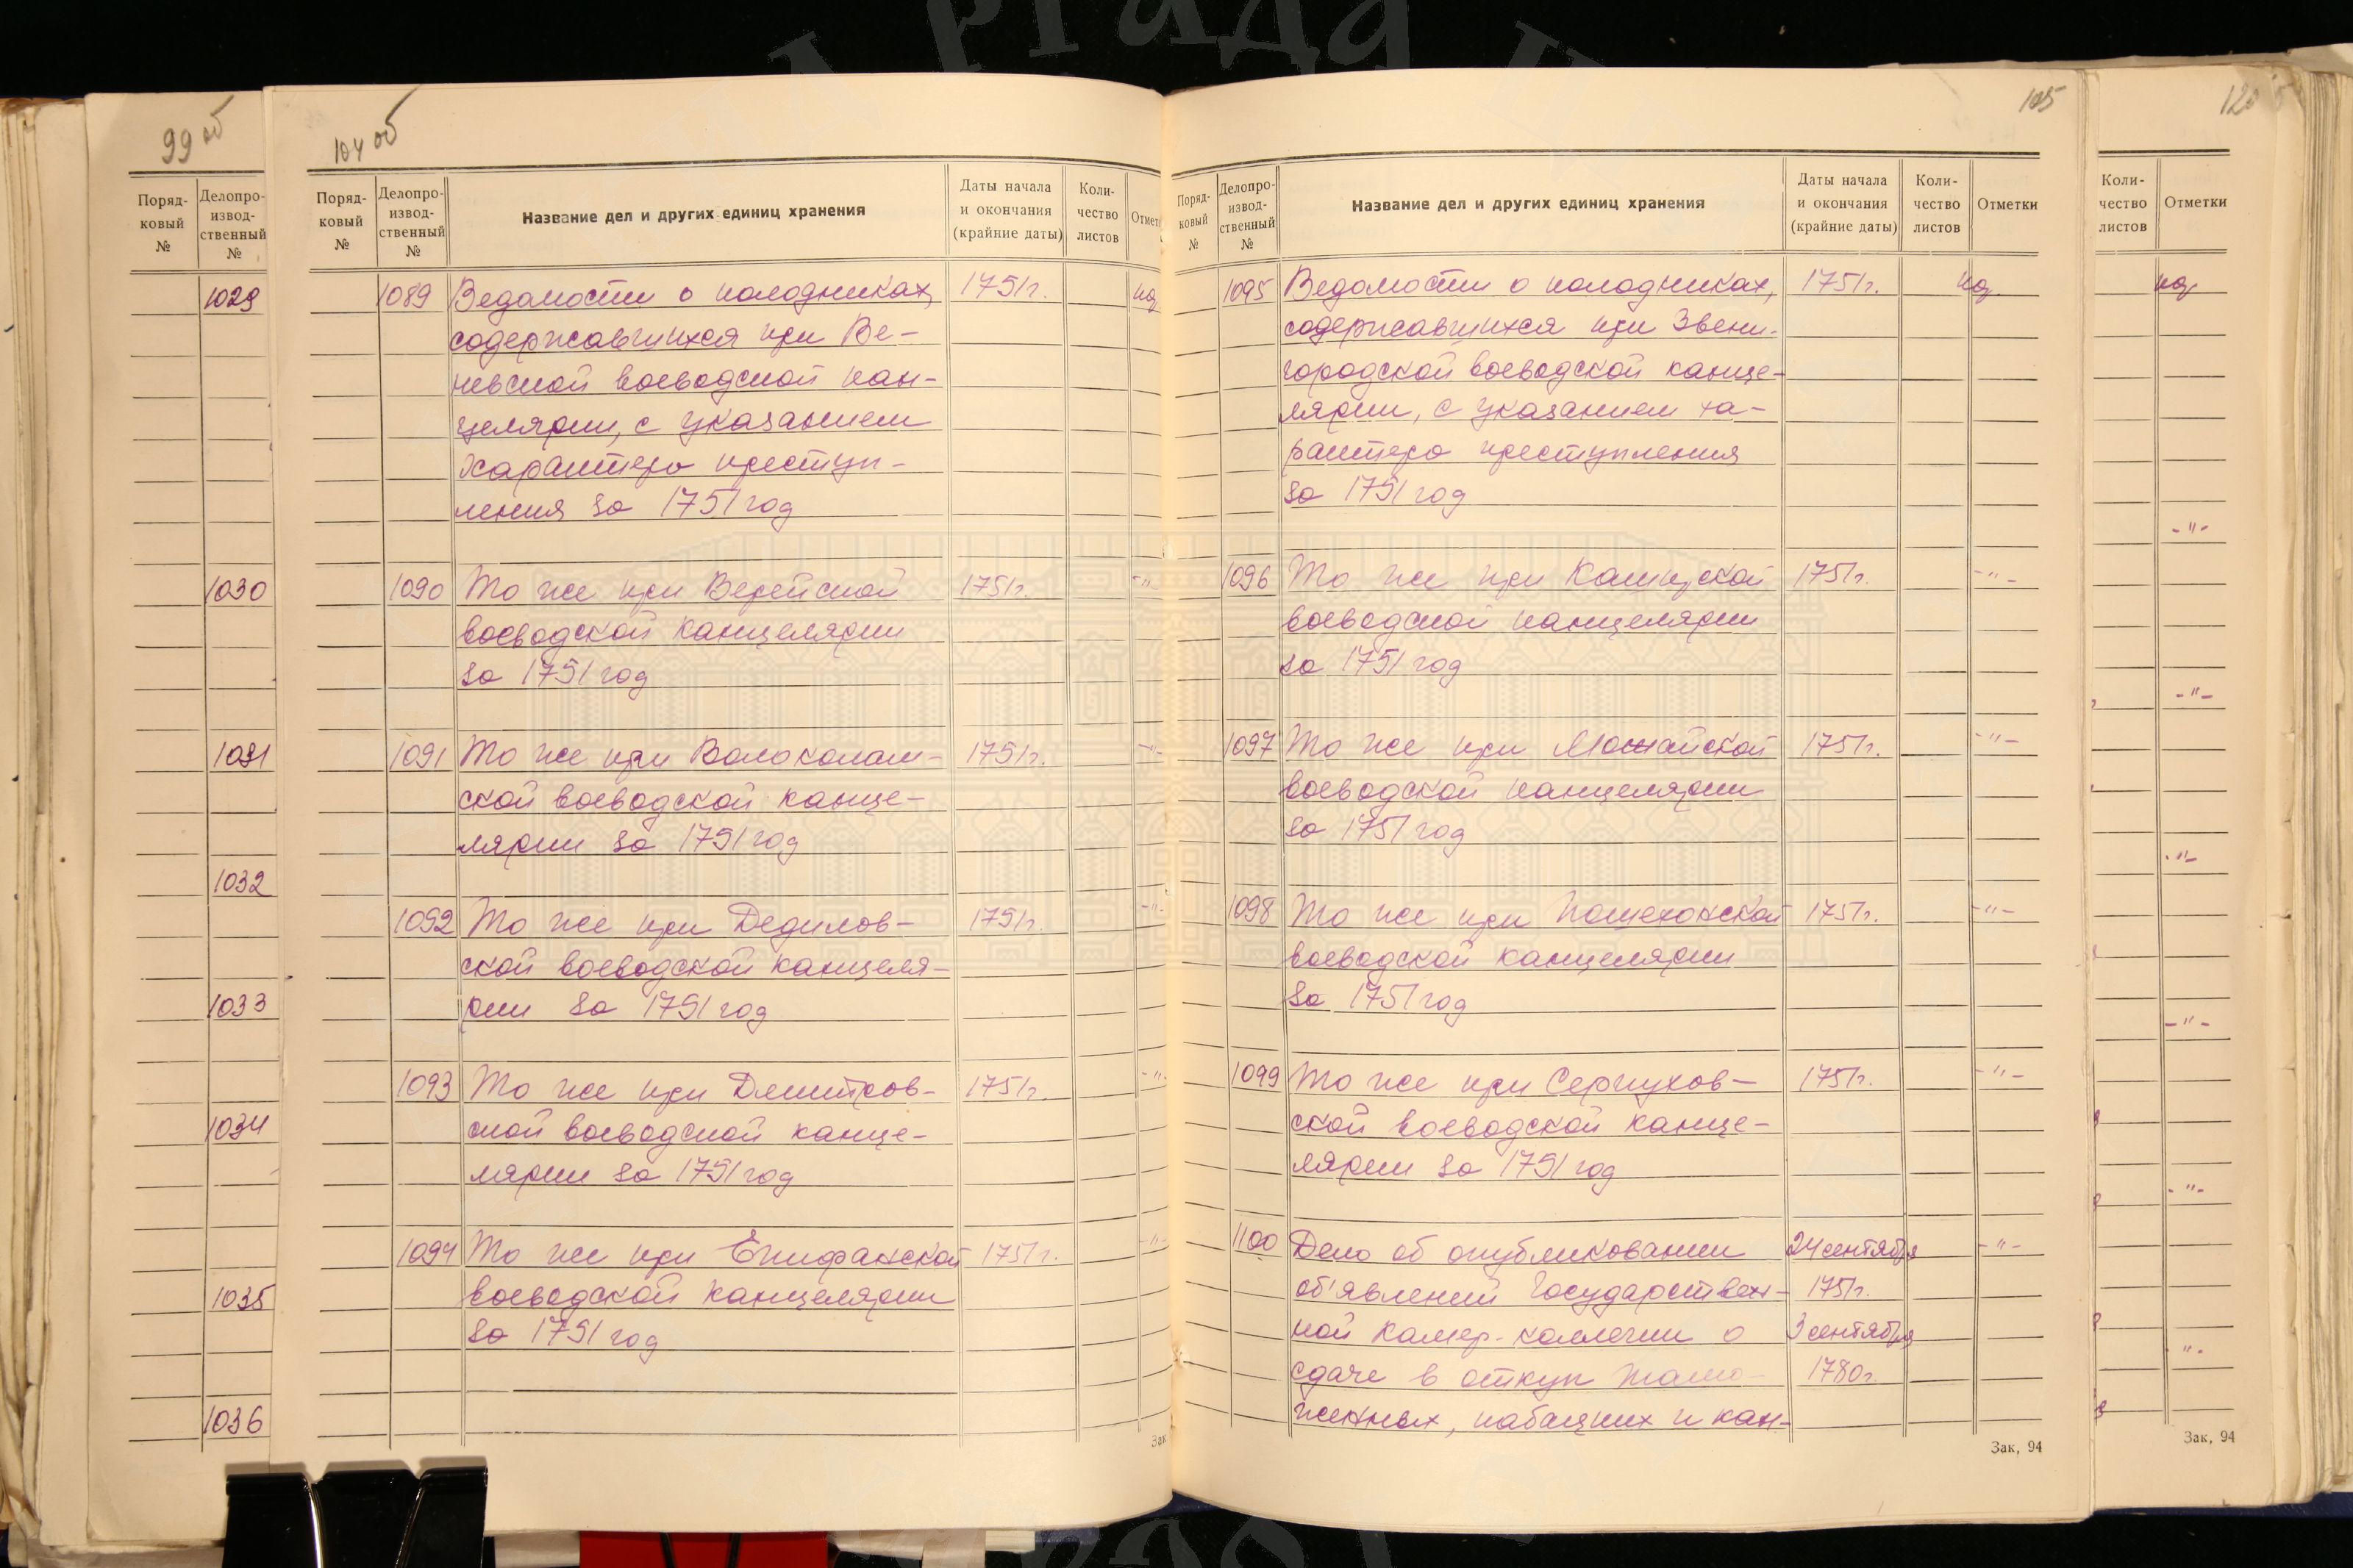 99 об
Поряд-
ковый
№
Делопро-
извод-
ственный
№
1029
1030
1031
1032
1033
1034
1035
1036
104 об
Поряд-
ковый
№
Делопро-
извод-
ственный
№
Название дел и других единиц хранения
Даты начала
и окончания
(крайние даты)
Коли-
чество
листов
1089 Ведомости о колодниках, 1751г.
содержавшихся при Ве-
невской воеводской кан-
целярии, с указанием
характера преступ-
ления за 1751 год
1090 То же при Верейской 1751г. -"-
воеводской канцелярии
за 1751 год
1091 То же при Волоколам- 1751г. -"-
ской воеводской канце-
лярии за 1751 год
1092 То же при Дедилов- 1751г. -"-
ской воеводской канцеля-
рии за 1751 год
1093 То же при Дмитров- 1751г. -"-
ской воеводской канце-
лярии за 1751 год
1094 То же при Епифанской 1751г. -"-
воеводской канцелярии
за 1751 год
Зак
105
Поряд-
ковый
№
Делопро-
извод-
ственный
№
Название дел и других единиц хранения
Даты начала
и окончания
(крайние даты)
Коли-
чество
листов
Отметки
1095 Ведомости о колодниках, 1751г.
содержавшихся при Звени-
городской воеводской канце-
лярии, с указанием ха-
рактера преступления
за 1751 год
1096 То же при Каширской 1751г. -"-
воеводской канцелярии
за 1751 год
1097 То же при Можайской 1751г. -"-
воеводской канцелярии
за 1751 год
1098 То же при Пошехонской 1751г. -"-
воеводской канцелярии
за 1751 год
1099 То же при Серпухов- 1751г. -"-
ской воеводской канце-
лярии за 1751 год
1100 Дело об опубликовании 24 сентября -"-
об'явлений Государствен- 1751г.
ной камер-коллегии о 3 сентября
сдаче в откуп тамо- 1780г.
женных, кабацких и кан-
Зак, 94
Коли-
чество
листов
Отметки
-"-
-"-
-"-
-"-
-"-
-"-
Зак, 94